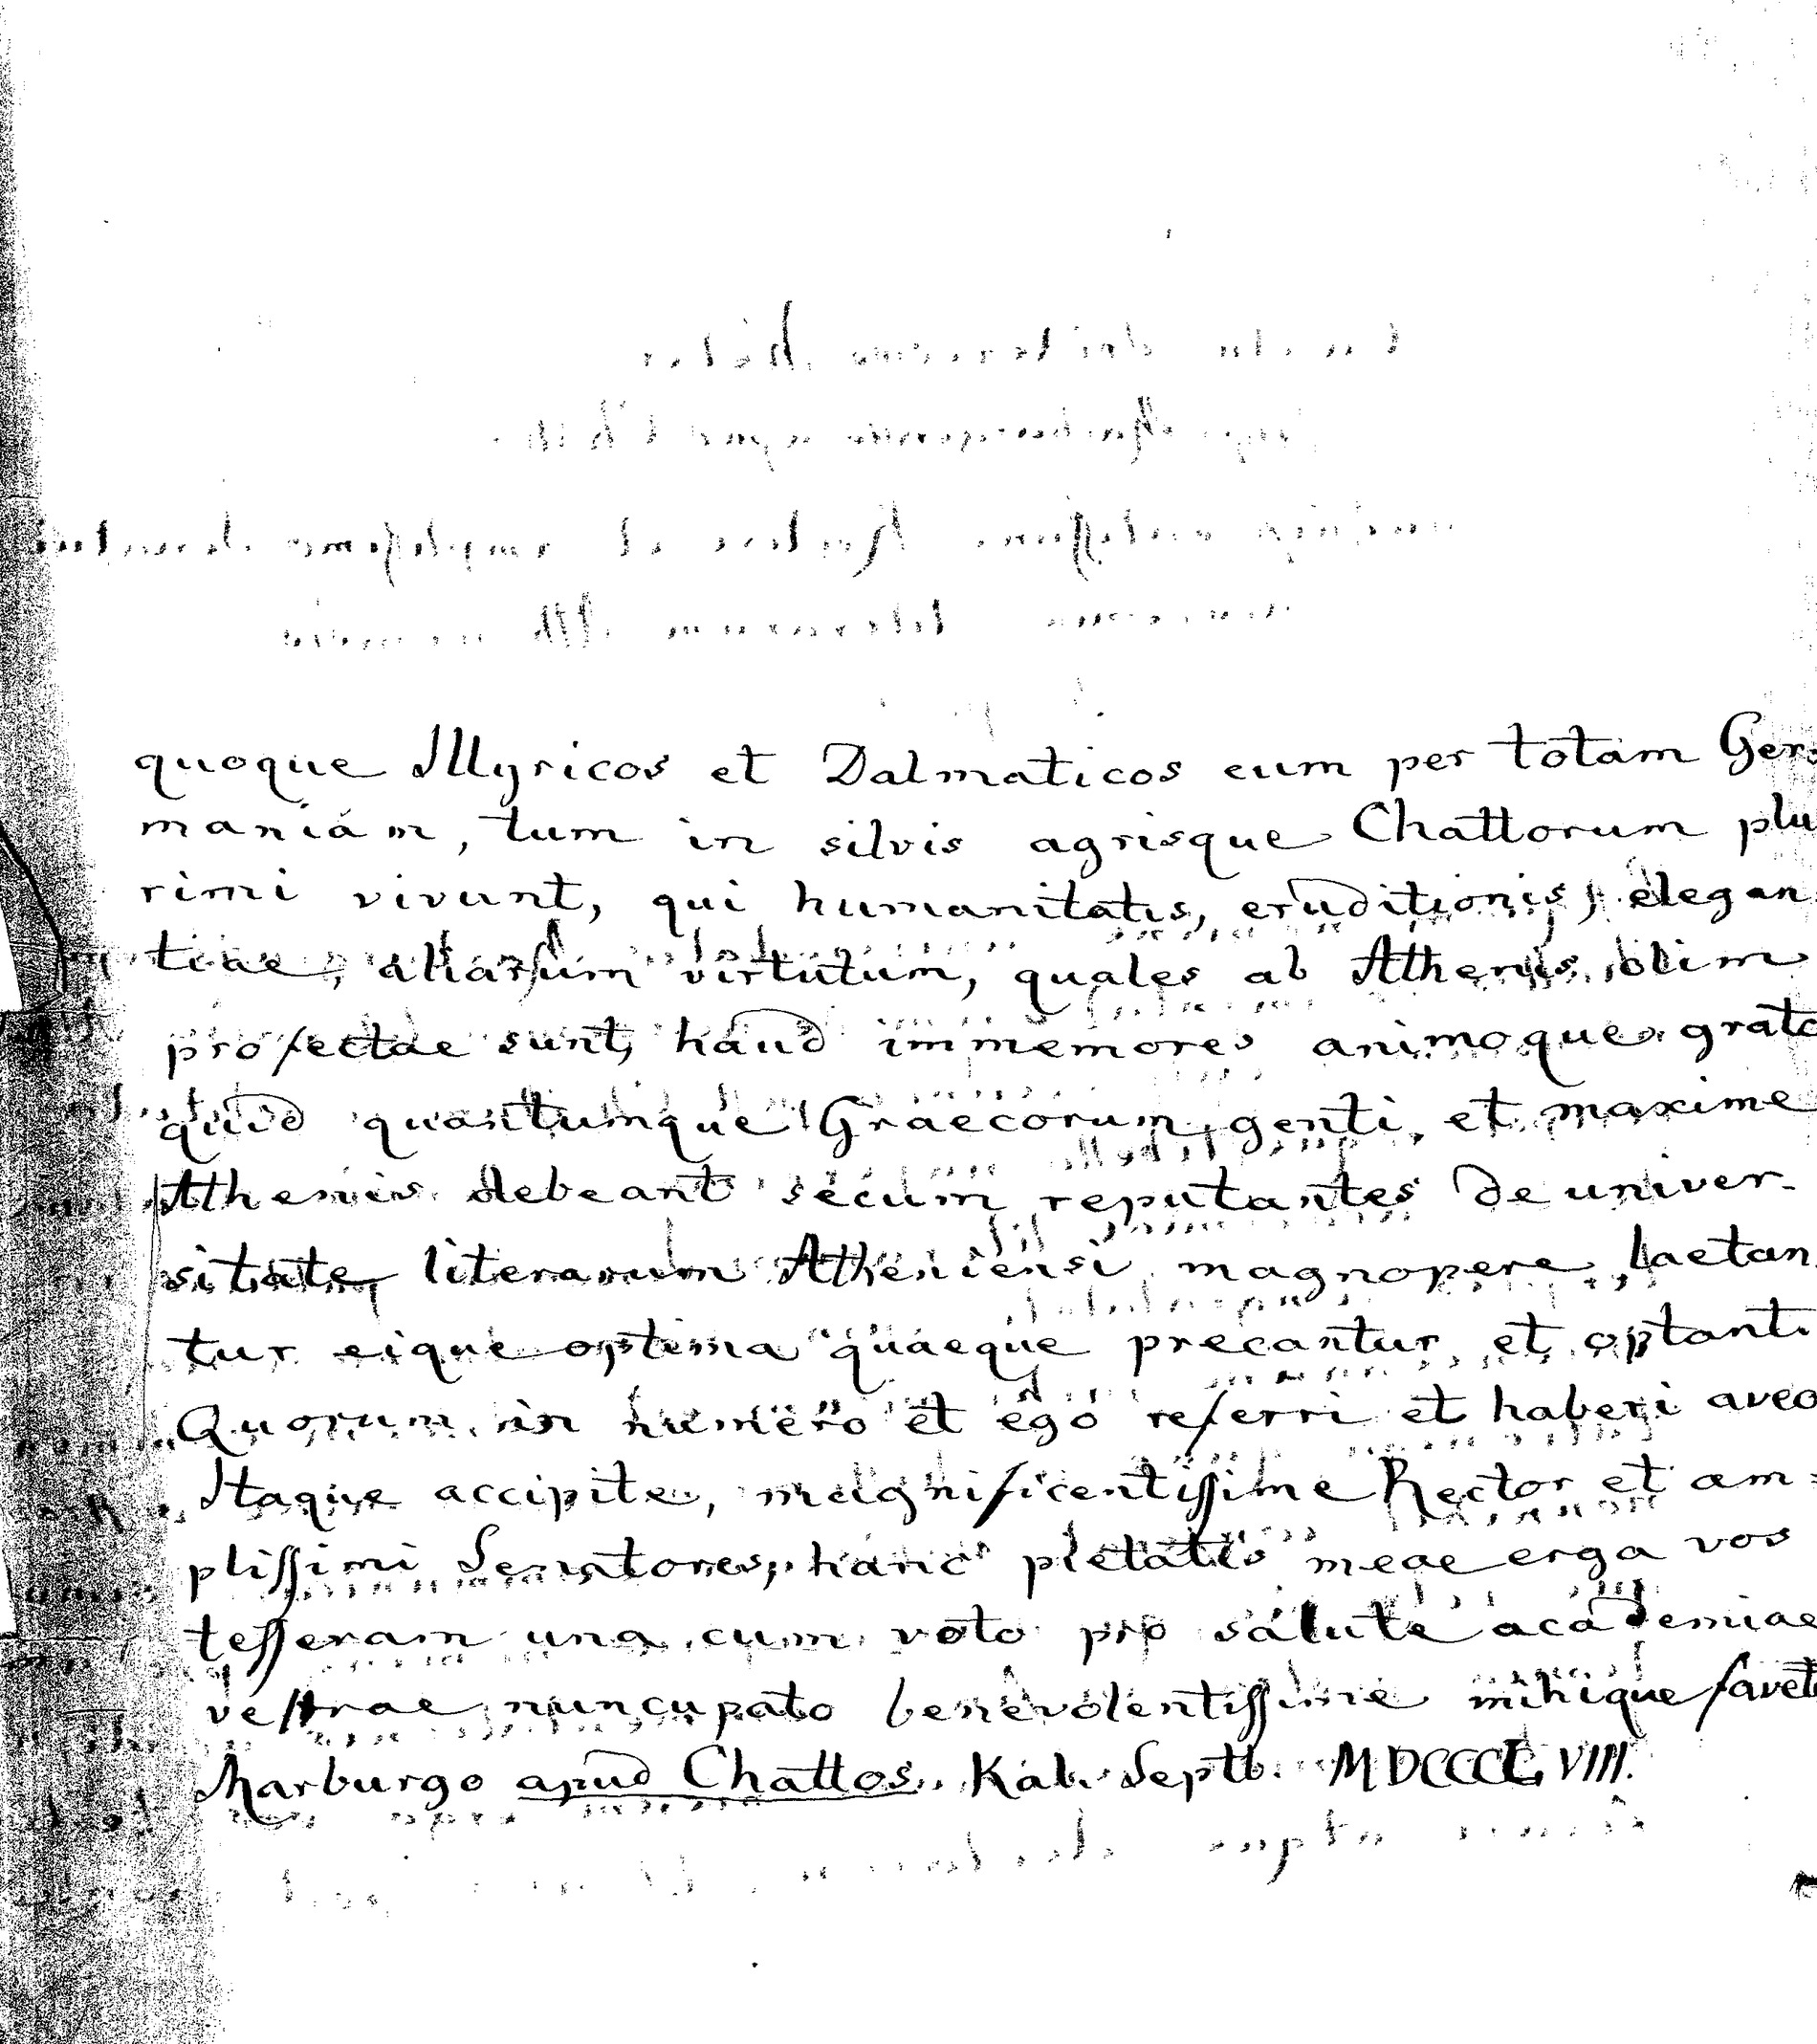 quoque Illyricos et Dalmaticos cum per totam Ger=
maniam, tum in silvis agrisque Chattorum plu
rimi vivunt, qui humanitatis, eruditionis, elegan
tiae, aliarum virtutum, quales ab Athenis olim
profectae sunt, haud immemores animoque grato
quid quantumque Graecorum genti et maxime
Athenis debeant secum reputantes de univer-
sitate literarum Atheniensi magnopere laetan
tur eique optima quaeque precantur et optant.
Quorum in numero et ego referri et haberi aveo
Itaque accipite, magnificentissime Rector et am=
plissimi Senatores, hanc pietatis meae erga vos
tesseram una cum voto pro salute academiae
vestrae nuncupato benevolentissime mihique favete
Marburgo apud Chattos. Kal. Septb. MDCCCCLVIII.